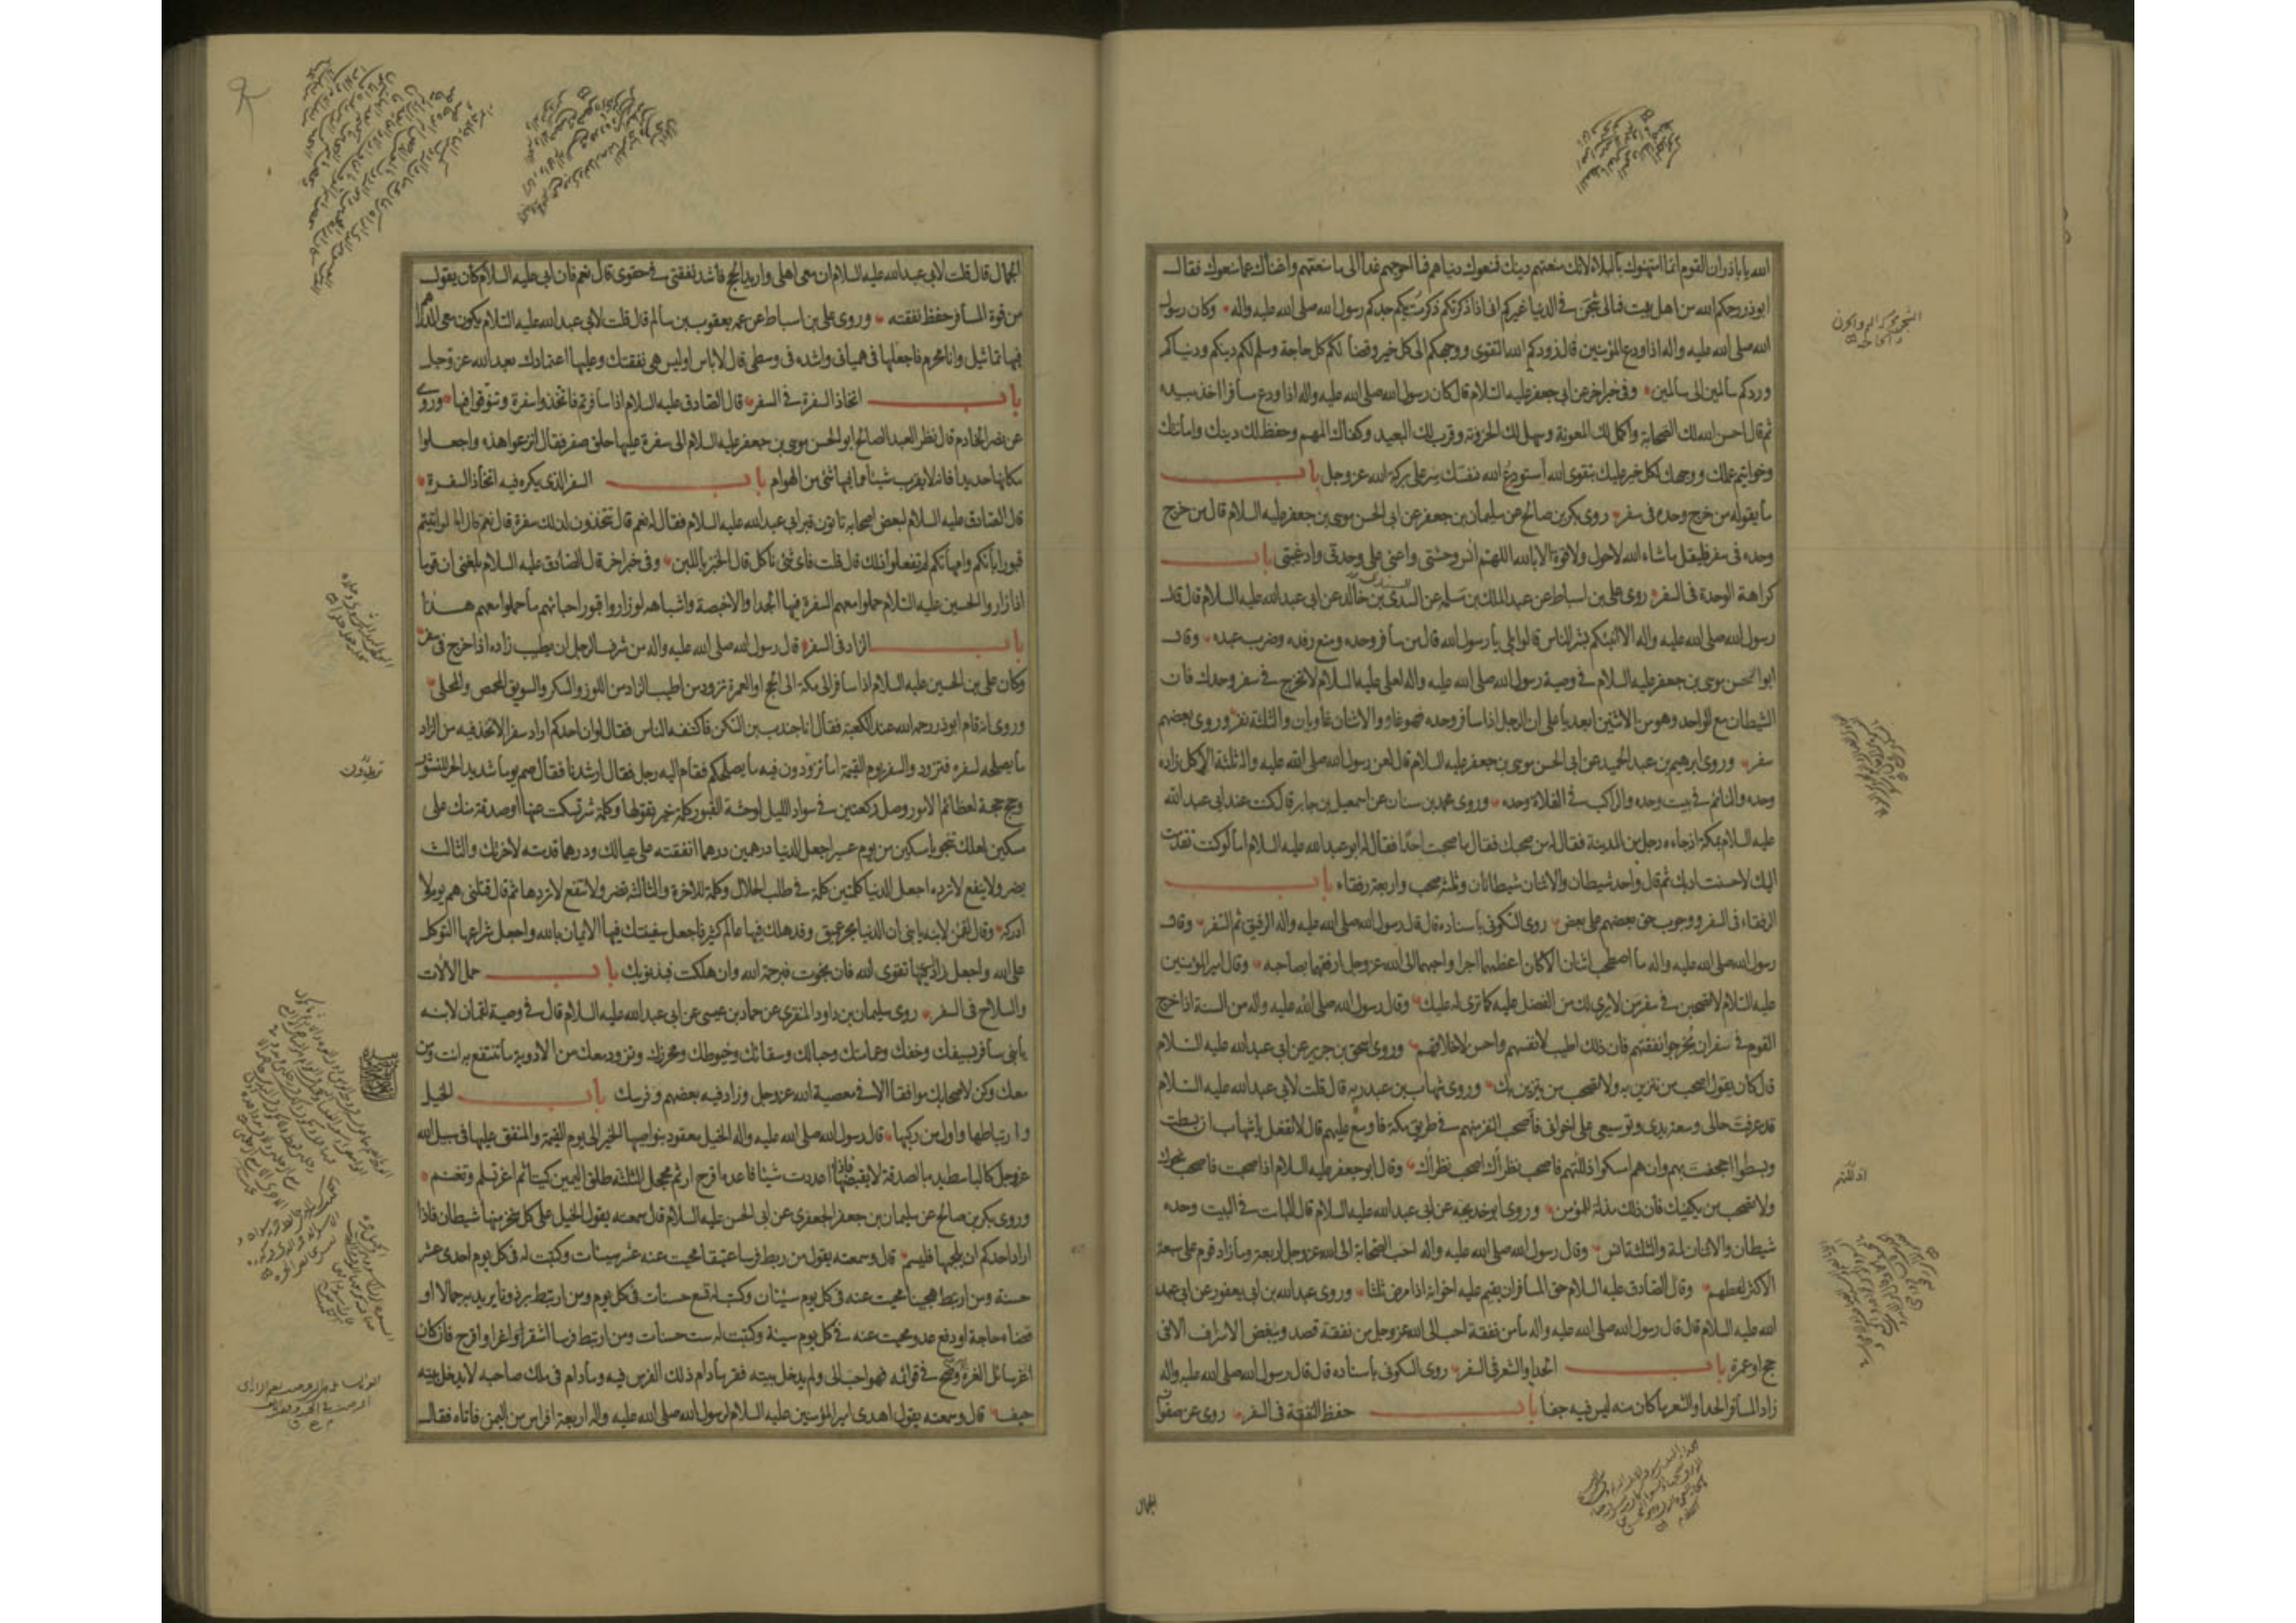 الله يا باذر ان القوم انما امتهنوك بالبلاء لانك منعتهم دينك فمنعوك دنياهم فما احوجهم غدا الى ما منعتهم واغناك عما منعوك فقال
ابوذر رحمكم الله من اهل بيت فمالى شجن فى الدنيا غيركم انى اذا ذكرتكم ذكرت بكم جدكم رسول الله صلى الله عليه واله وكان رسول
الله صلى الله عليه واله اذا ودع المؤمنين قال زودكم الله التقوى ووجهكم الى كل خير وقضا لكم كل حاجة وسلم لكم دينكم ودنياكم
وردكم سالمين الى سالمين وفى خبر اخر عن ابى جعفر عليه السلام قال كان رسول الله صلى الله عليه واله اذا ودع مسافرا اخذ بيده
ثم قال احسن الله لك الصحابة واكمل لك المعونة وسهل لك الحزونة وقرب لك البعيد وكفاك المهم وحفظ لك دينك وامانتك
وخواتيم عملك ووجهك لكل خير عليك بتقوى الله استودع الله نفسك سر على بركة الله عز وجل باب
ما يقوله من خرج وحده فى سفر روى بكر بن صالح عن سليمان بن جعفر عن ابى الحسن موسى بن جعفر عليه السلام قال من خرج
وحده فى سفر فليقل ما شاء الله لا حول ولا قوة الا بالله اللهم انس وحشتى واعنى على وحدتى واد غيبتى باب
كراهة الوحدة فى السفر روى على بن اسباط عن عبد الملك بن سلمه عن السدى بن خالد عن ابى عبد الله عليه السلام قال قال
رسول الله صلى الله عليه واله الا انبئكم بشر الناس قالوا بلى يا رسول الله قال من سافر وحده ومنع رفده وضرب عبده وقال
ابو الحسن موسى بن جعفر عليه السلام فى وصية رسول الله صلى الله عليه واله لعلى عليه السلام لا تخرج فى سفر وحدك فان
الشيطان مع الواحد وهو من الاثنين ابعد يا على ان الرجل اذا سافر وحده فهو غاو والاثنان غاويان والثلثة نفر وروى بعضهم
سفر وروى ابرهيم بن عبد الحميد عن ابى الحسن موسى بن جعفر عليه السلام قال لعن رسول الله صلى الله عليه واله ثلثة الاكل زاده
وحده والنائم فى بيت وحده والراكب فى الفلاة وحده وروى محمد بن سنان عن اسمعيل بن جابر قال كنت عند ابى عبد الله
عليه السلام بمكة اذ جاءه رجل من المدينة فقال له من صحبك فقال ما صحبت احدا فقال له ابو عبد الله عليه السلام اما لو كنت تقدمت
اليك لاحسنت ادبك ثم قال واحد شيطان والاثنان شيطانان وثلثة صحب واربعة رفقاء باب
الرفقاء فى السفر ووجوب حق بعضهم على بعض روى السكونى باسناده قال قال رسول الله صلى الله عليه واله الرفيق ثم السفر وقال
رسول الله صلى الله عليه واله ما اصطحب اثنان الا كان اعظمهما اجرا واحبهما الى الله عز وجل ارفقهما بصاحبه وقال امير المؤمنين
عليه السلام لا تصحبن فى سفر من لا يرى لك من الفضل عليه كما ترى له عليك وقال رسول الله صلى الله عليه واله من السنة اذا خرج
القوم فى سفر ان يخرجوا نفقتهم فان ذلك اطيب لانفسهم واحسن لاخلاقهم وروى اسحق بن جرير عن ابى عبد الله عليه السلام
قال كان يقول اصحب من تتزين به ولا تصحب من يتزين بك وروى شهاب بن عبد ربه قال قلت لابى عبد الله عليه السلام
قد عرفت حالى وسعة يدى وتوسيعى على اخوانى فاصحب النفر منهم فى طريق مكة فاوسع عليهم قال لا تفعل يا شهاب ان بسطت
وبسطوا اجحفت بهم وان هم امسكوا اذللتهم فاصحب نظراك اصحب نظراك وقال ابو جعفر عليه السلام اذا صحبت فاصحب نحوك
ولا تصحب من يكفيك فان ذلك مذلة للمؤمن وروى ابو خديجه عن ابى عبد الله عليه السلام قال البائت فى البيت وحده
شيطان والاثنان لمة والثلثة انس وقال رسول الله صلى الله عليه واله احب الصحابة الى الله عز وجل اربعة وما زاد قوم على سبعة
الا كثر لغطهم وقال الصادق عليه السلام حق المسافر ان يقيم عليه اخوانه اذا مرض ثلثا وروى عبد الله بن ابى يعفور عن ابى عبد
الله عليه السلام قال قال رسول الله صلى الله عليه واله ما من نفقة احب الى الله عز وجل من نفقة قصد ويبغض الاسراف الا فى
حج او عمرة باب الحدا والشعر فى السفر روى السكونى باسناده قال قال رسول الله صلى الله عليه واله
زاد المسافر الحدا والشعر ما كان منه ليس فيه جفا باب حفظ النفقة فى السفر روى عن صفوان
الجمال
الجمال قال قلت لابى عبد الله عليه السلام ان معى اهلى واريد الحج فاشد نفقتى فى حقوى قال نعم فان ابى عليه السلام كان يقول
من قوة المسافر حفظ نفقته وروى على بن اسباط عن عمه يعقوب بن سالم قال قلت لابى عبد الله عليه السلام يكون معى الدراهم
فيها تماثيل وانا محرم فاجعلها فى هميانى واشده فى وسطى قال لا باس اوليس هى نفقتك وعليها اعتمادك بعد الله عز وجل
باب اتخاذ السفرة فى السفر قال الصادق عليه السلام اذا سافرتم فاتخذوا سفرة وتنوقوا فيها وروى
عن نصر الخادم قال نظر العبد الصالح ابو الحسن موسى بن جعفر عليه السلام الى سفرة عليها حلق صفر فقال انزعوا هذه واجعلوا
مكانها حديدا فانه لا يقرب شيئا مما فيها شئ من الهوام باب السفر الذى يكره فيه اتخاذ السفرة
قال الصادق عليه السلام لبعض اصحابه تاتون قبر ابى عبد الله عليه السلام فقال له نعم قال تتخذون لذلك سفرة قال نعم قال اما لو اتيتم
قبور ابائكم وامهاتكم لم تفعلوا ذلك قال قلت فاى شئ ناكل قال الخبز باللبن وفى خبر اخر قال الصادق عليه السلام بلغنى ان قوما
اذا زاروا الحسين عليه السلام حملوا معهم السفرة فيها الجدا والاخبصة واشباهه لو زاروا قبور احبائهم ما حملوا معهم هذا
باب الزاد فى السفر قال رسول الله صلى الله عليه واله من شرف الرجل ان يطيب زاده اذا خرج فى سفر
وكان على بن الحسين عليه السلام اذا سافر الى مكة الى الحج او العمرة تزود من اطيب الزاد من اللوز والسكر والسويق المحمص والمحلى
وروى انه قام ابوذر رحمه الله عند الكعبة فقال انا جندب بن السكن فاكتنفه الناس فقال لو ان احدكم اراد سفرا لاتخذ فيه من الزاد
ما يصلحه لسفره فتزود والسفر يوم القيمة اما تزودون فيه ما يصلحكم فقام اليه رجل فقال ارشدنا فقال صم يوما شديد الحر للنشور
وحج حجة لعظائم الامور وصل ركعتين فى سواد الليل لوحشة القبور كلمة خير تقولها وكلمة شر تسكت عنها او صدقة منك على
مسكين لعلك تنجو يا مسكين من يوم عسير اجعل الدنيا درهمين درهما انفقته على عيالك ودرهما قدمته لاخرتك والثالث
يضر ولا ينفع لا ترده اجعل الدنيا كلمتين كلمة فى طلب الحلال وكلمة للاخرة والثالثة تضر ولا تنفع لا تردها ثم قال قتلنى هم يوم لا
ادركه وقال لقمن لابنه يا بنى ان الدنيا بحر عميق وقد هلك فيها عالم كثير فاجعل سفينتك فيها الايمان بالله واجعل شراعها التوكل
على الله واجعل زادك فيها تقوى الله فان نجوت فبرحمة الله وان هلكت فبذنوبك باب حمل الآلات
والسلاح فى السفر روى سليمان بن داود المنقرى عن حماد بن عيسى عن ابى عبد الله عليه السلام قال فى وصية لقمان لابنه
يا بنى سافر بسيفك وخفك وعمامتك وحبالك وسقائك وخيوطك ومخرزك وتزود معك من الادوية ما تنتفع به انت ومن
معك وكن لاصحابك موافقا الا فى معصية الله عز وجل وزاد فيه بعضهم وفرسك باب الخيل
وارتباطها واول من ركبها قال رسول الله صلى الله عليه واله الخيل معقود بنواصيها الخير الى يوم القيمة والمنفق عليها فى سبيل الله
عز وجل كالباسط يده بالصدقة لا يقبضها فاذا اعددت شيئا فاعده اقرح ارثم محجل الثلثة طلق اليمين كميتا ثم اغر تسلم وتغنم
وروى بكر بن صالح عن سليمان بن جعفر الجعفرى عن ابى الحسن عليه السلام قال سمعته يقول الخيل على كل منخر منها شيطان فاذا
اراد احدكم ان يلجمها فليسم قال وسمعته يقول من ربط فرسا عتيقا محيت عنه عشر سيئات وكتبت له فى كل يوم احدى عشر
حسنة ومن ارتبط هجينا محيت عنه فى كل يوم سيئتان وكتب له تسع حسنات فى كل يوم ومن ارتبط برذونا يريد به جمالا او
قضاء حاجة او دفع عدو محيت عنه فى كل يوم سيئة وكتبت له ست حسنات ومن ارتبط فرسا اشقر او اغر او اقرح فان كان
اغر سائل الغرة به وضح فى قوائمه فهو احب الى ولم يدخل بيته فقر ما دام ذلك الفرس فيه وما دام فى ملك صاحبه لا يدخل بيته
حيف قال وسمعته يقول اهدى امير المؤمنين عليه السلام لرسول الله صلى الله عليه واله اربعة افراس من اليمن فاتاه فقال